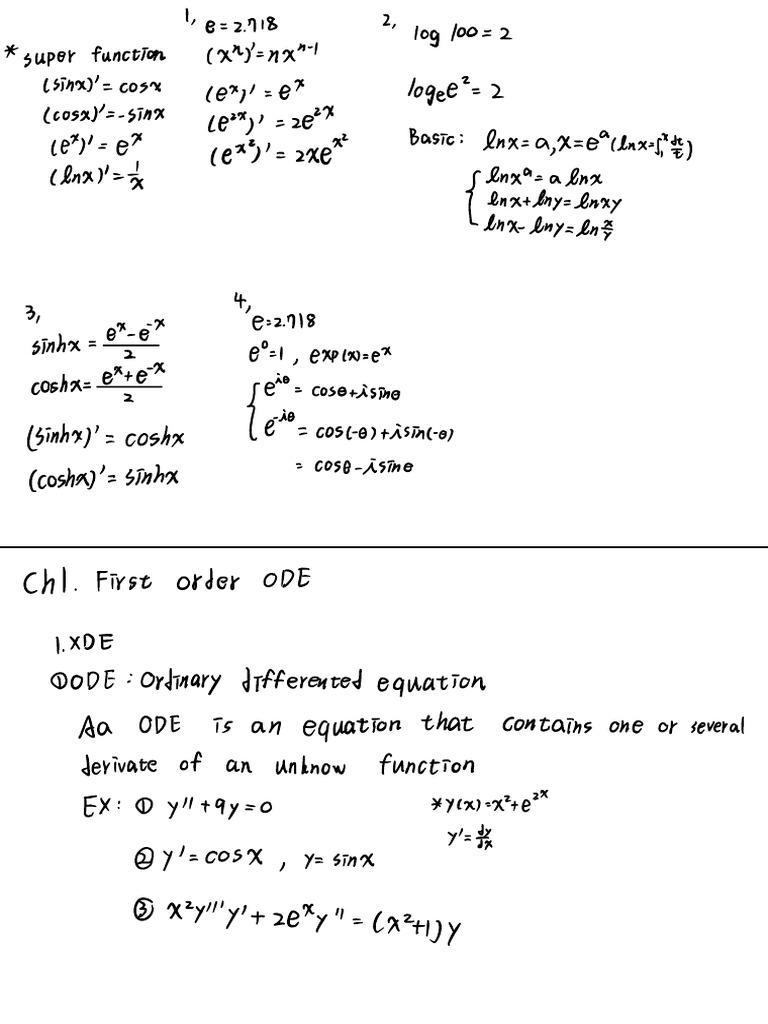 * super function
(sinx)' = cosx
(cosx)' = -sinx
(eˣ)' = eˣ
(lnx)' = 1/x
1,
e = 2.718
(xⁿ)' = nxⁿ⁻¹
(eˣ)' = eˣ
(e^2x)' = 2e^2x
(e^x²)' = 2xe^x²
2,
log 100 = 2
logₑe² = 2
Basic: lnx = a, x = eᵃ (lnx = ∫₁ˣ dt/t)
{ lnxᵃ = a lnx
lnx + lny = lnxy
lnx - lny = ln x/y
3,
sinhx = (eˣ - e⁻ˣ)/2
coshx = (eˣ + e⁻ˣ)/2
(sinhx)' = coshx
(coshx)' = sinhx
4,
e = 2.718
e⁰ = 1 , exp(x) = eˣ
{ e^iθ = cosθ + i sinθ
e^-iθ = cos(-θ) + i sin(-θ)
= cosθ - i sinθ
Ch1. First order ODE
1. XDE
① ODE : Ordinary differented equation
Aa ODE is an equation that contains one or several
derivate of an unknow function
EX: ① y'' + 9y = 0
* y(x) = x² + e^2x
y' = dy/dx
② y' = cosx , y = sinx
③ x²y'''y' + 2eˣy'' = (x²+1)y